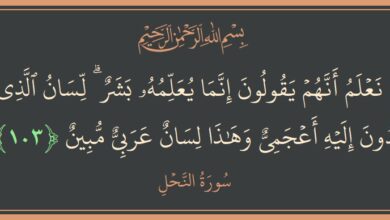 بِسْمِ اللَّهِ الرَّحْمَٰنِ الرَّحِيمِ
نَعْلَمُ أَنَّهُمْ يَقُولُونَ إِنَّمَا يُعَلِّمُهُۥ بَشَرٌ ۗ لِّسَانُ ٱلَّذِى
دُونَ إِلَيْهِ أَعْجَمِىٌّ وَهَٰذَا لِسَانٌ عَرَبِىٌّ مُّبِينٌ ﴿١٠٣﴾
سُورَةُ النَّحْلِ